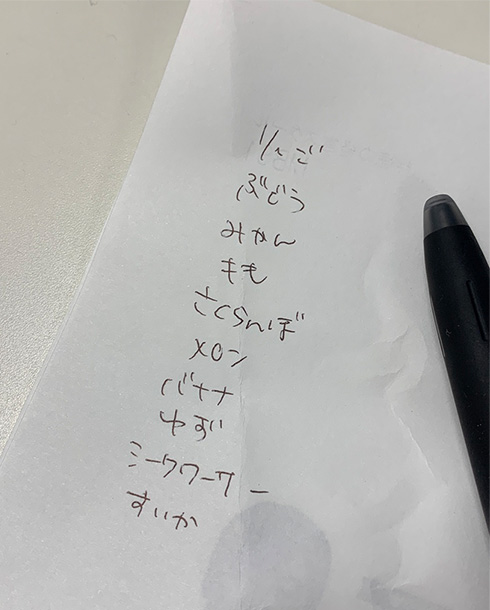 りんご
ぶどう
みかん
もも
さくらんぼ
メロン
バナナ
ゆず
シークワーサー
すいか